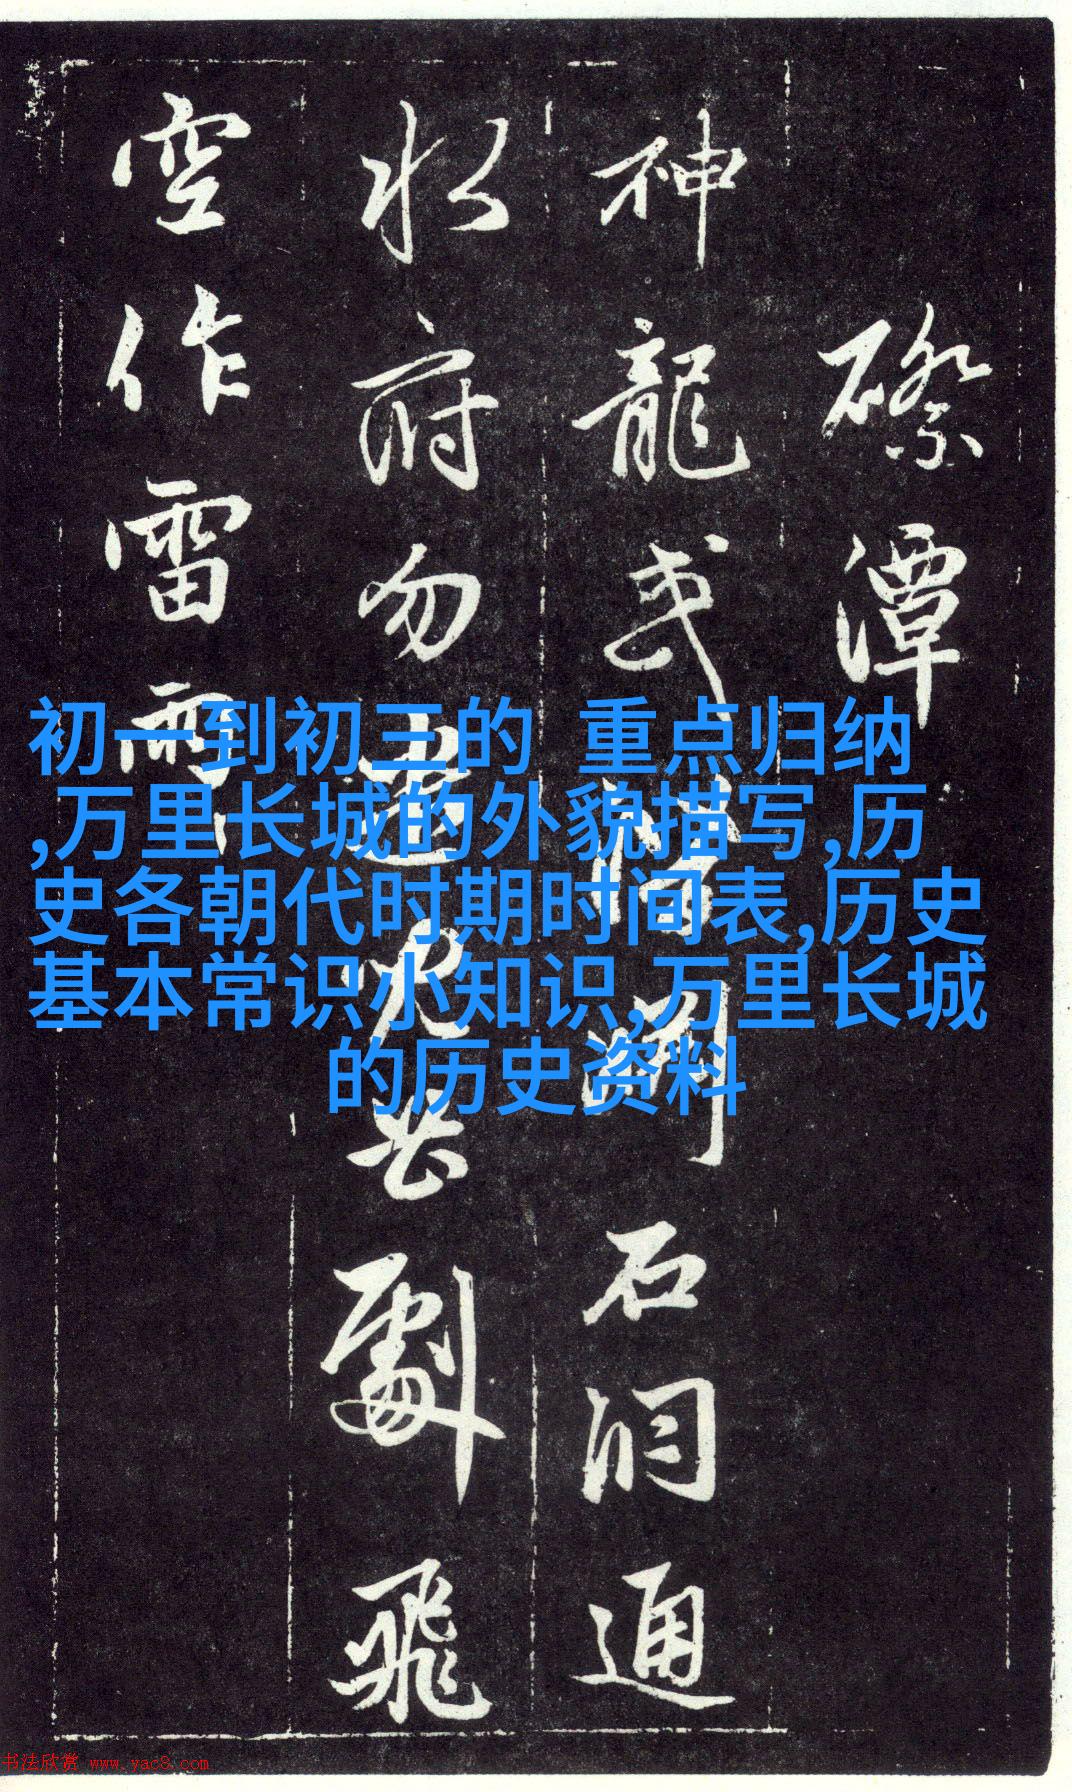 磜潭
神龍或
石洞通
水府勿
劇飛
空作雷雨
初一到初三的 重点归纳
,万里长城的外貌描写,历
史各朝代时期时间表,历史
基本常识小知识,万里长城
的历史资料
书法欣赏 www.yac8.com